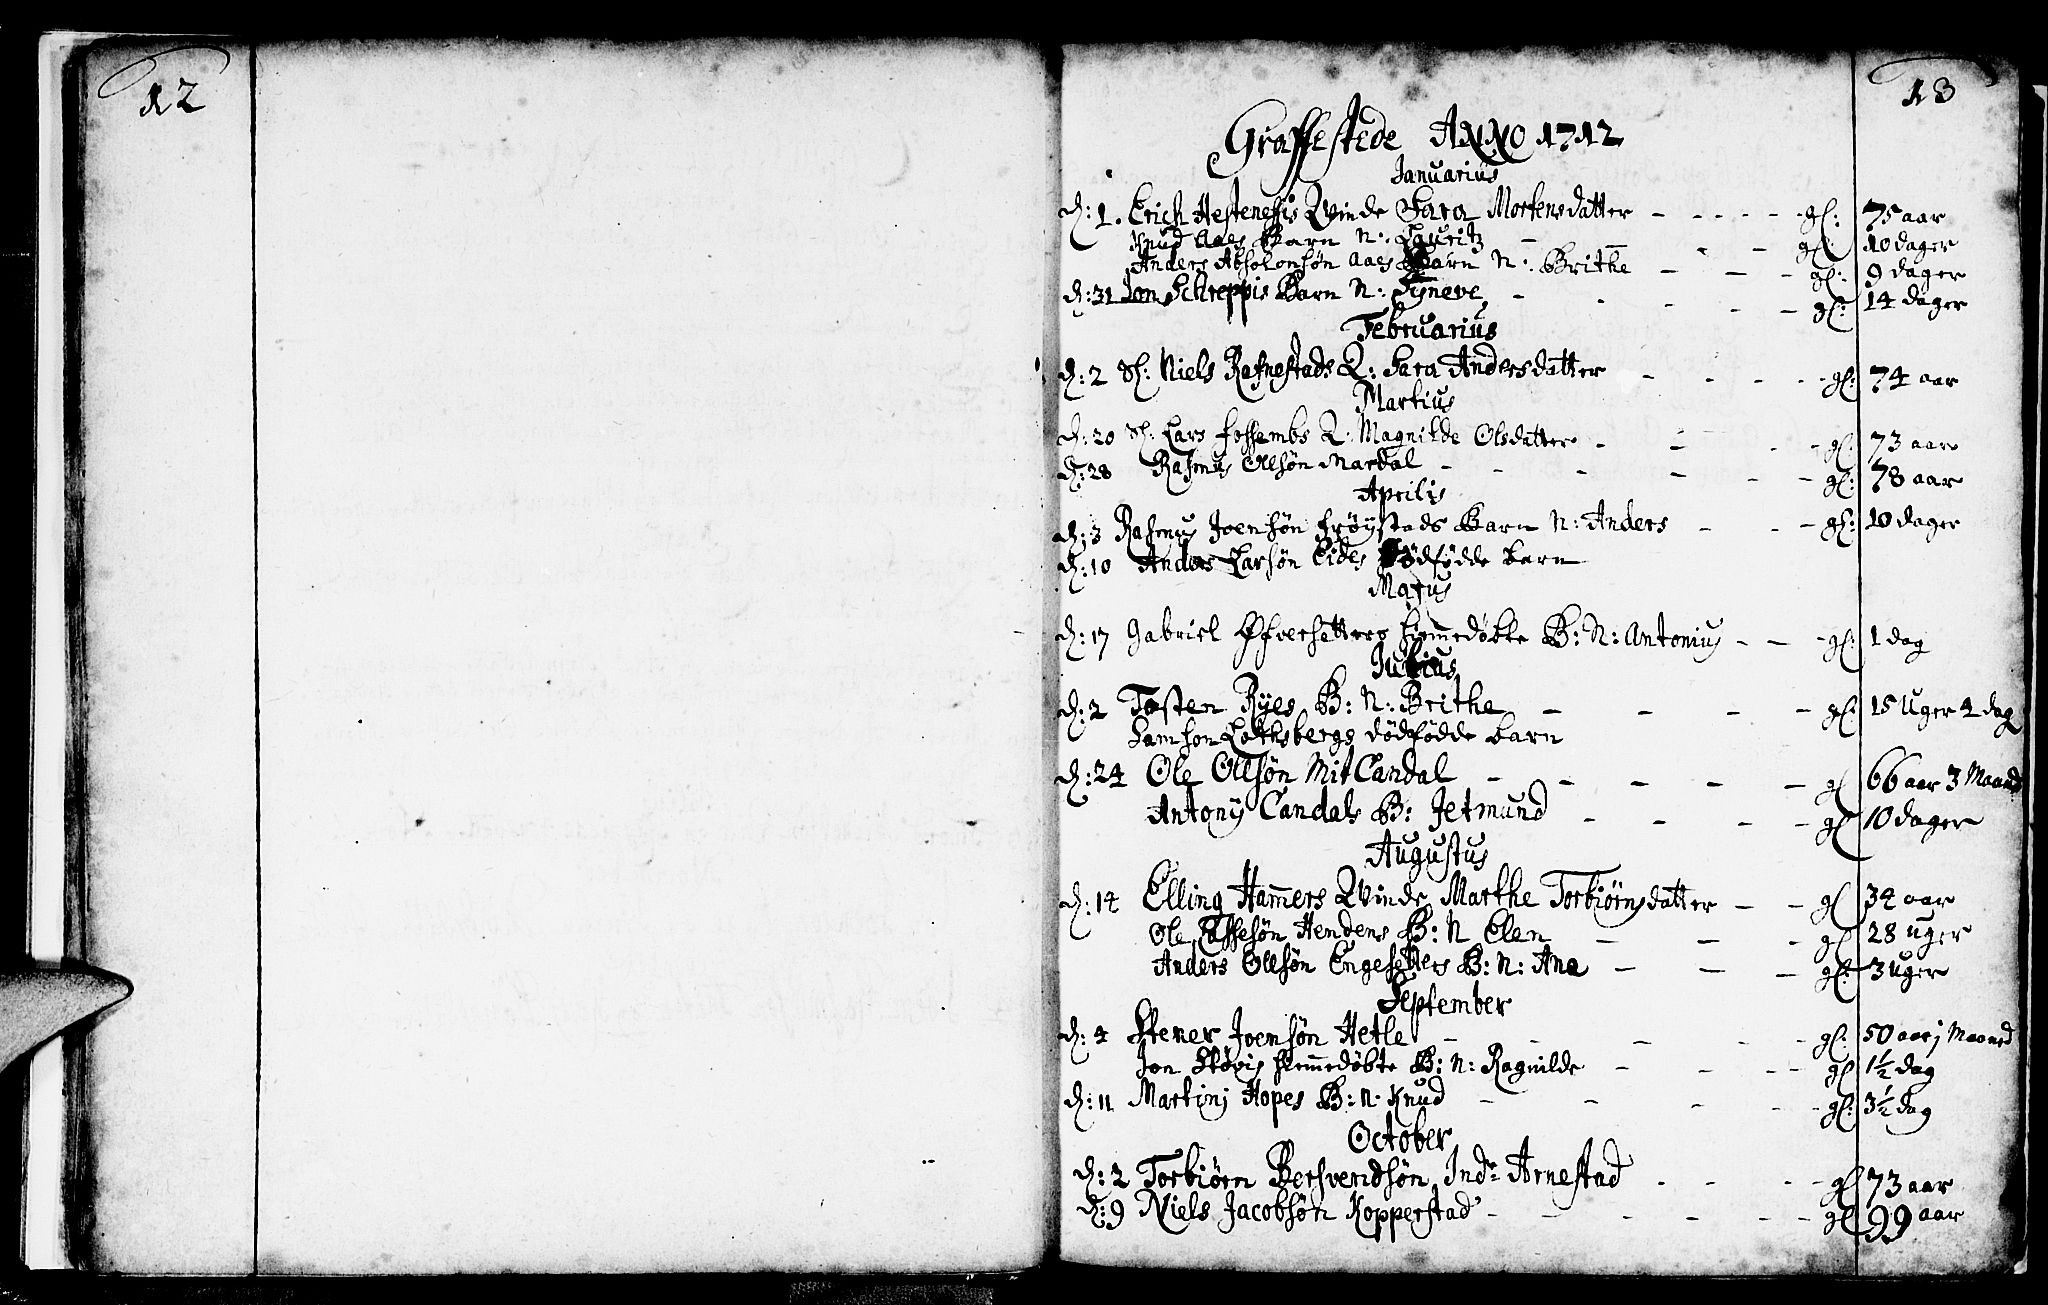 12
13
Graffestede ANNO 1712
Januarius
d: 1. Erich Hestenessis Qvinde Sara Mortensdatter - - - - - gl: 75 aar
Knud Aaes Barn N: Lauritz - - - gl: 10 dager
Anders Absolonsøn Aaes Barn N: Brithe - - - gl: 9 dager
d: 31 Jon Schreppis Barn N: Syneve - - - - gl: 14 dager
Februarius
d: 2 Sl: Niels Rafnestads Q: Sara Andersdatter - - - - gl: 74 aar
Martius
d: 20 Sl: Lars Fossembs Q: Magnilde Olsdatter - - - gl: 73 aar
d: 28 Rasmus Olsøn Mardal - - - - - - gl: 78 aar
Aprilis
d: 3 Rasmus Joensøn Frøystads Barn N: Anders - - - gl: 10 dager
d: 10 Anders Larsøn Eides dødfødde barn
Maius
d: 17 Gabriel Øfversetters hiemmedøbte B: N: Antonius - - - gl: 1 dag
Julius
d: 2 Tosten Ryes B: N: Brithe - - - - gl: 15 Uger 4 dag
Samson Lothsbergs dødfødde barn
d: 24 Ole Olsøn Mit Candal - - - - - gl 66 aar 3 Maaned
Antonij Candals B: Jetmund - - - - gl 10 dager
Augustus
d: 14 Elling Hamers Qvinde Marthe Torbiørnsdatter - - gl 34 aar
Ole Rassesøn Hendens B: N Elen - - - gl 28 uger
Anders Olsøn Engesetters B: N: Ana - - - gl: 3 uger
September
d: 4 Stener Joensøn Hetle - - - - gl: 50 aar j Maaned
Jon Støvis hiemmedøbte B: N: Ragnilde - - - - gl 1½ dag
d: 11 Martinj Hopes B: N. Knud - - - - - gl: 3½ dag
October
d: 2 Torbiørn Bersvendsøn Indr Arnestad - - - gl 73 aar
d: 9 Niels Jacobsøn Kopperstad - - - - - - gl 99 aar